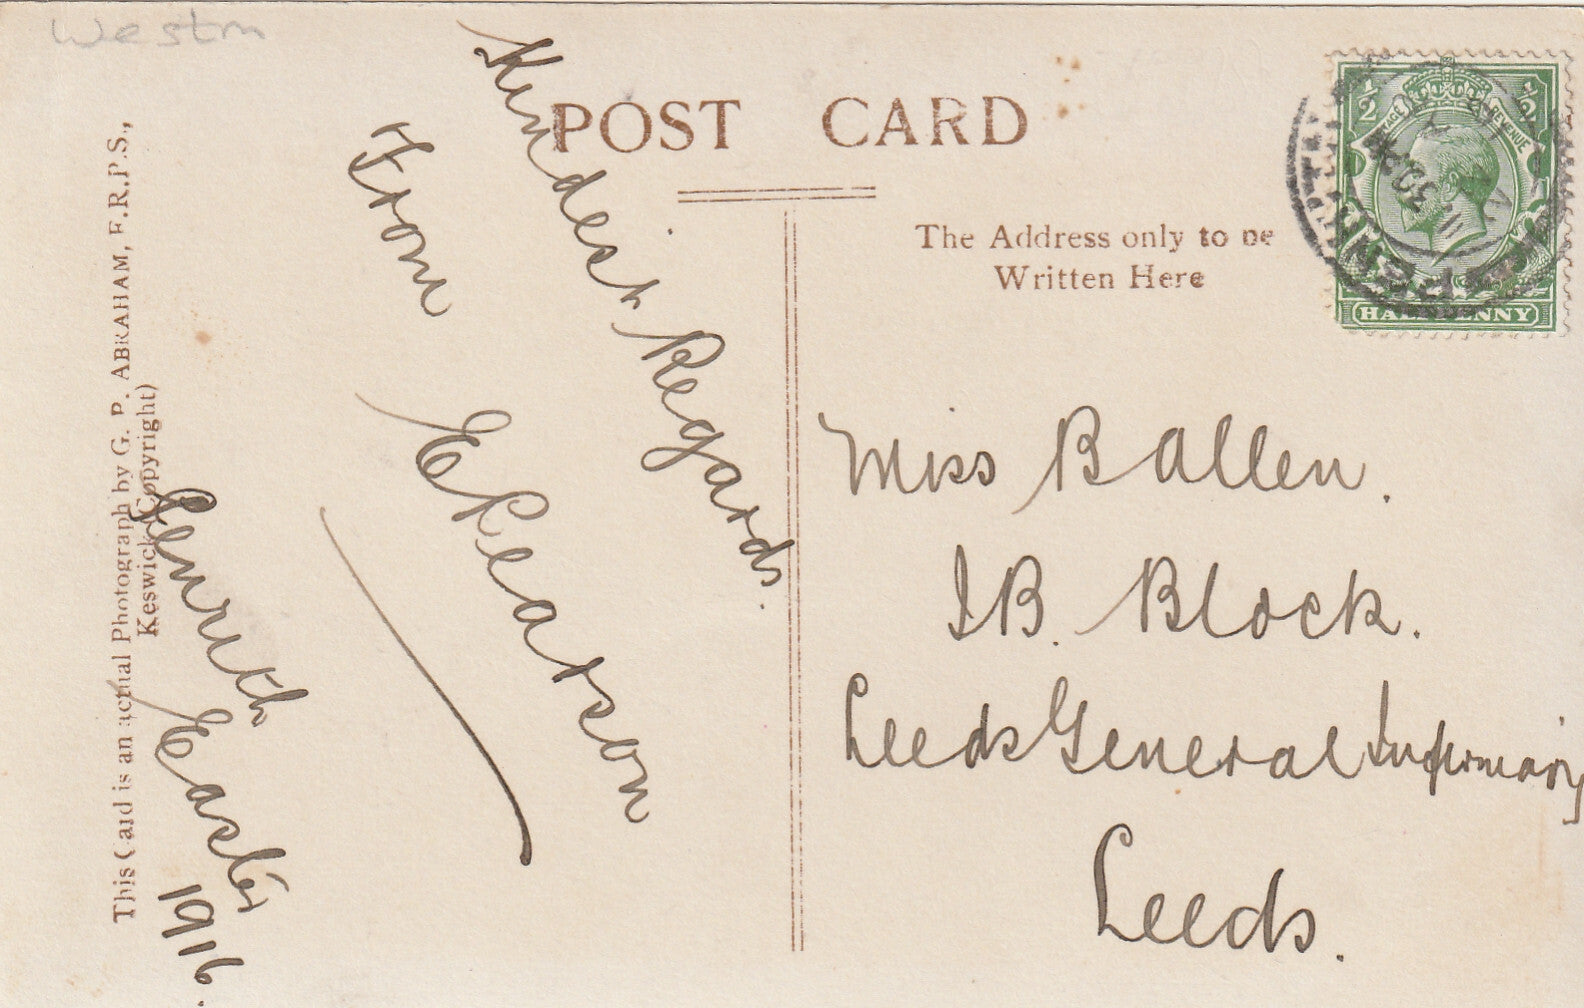 Westm
POST CARD
The Address only to be
Written Here
This Card is an actual Photograph by G. P. ABRAHAM, F.R.P.S.,
Keswick (Copyright)
Kindest Regards.
From
E Pearson
Penrith
Easter
1916.
Miss B Allen.
I B. Block.
Leeds General Infirmary
Leeds.
½ ½
REVENUE
HALFPENNY
PENRITH